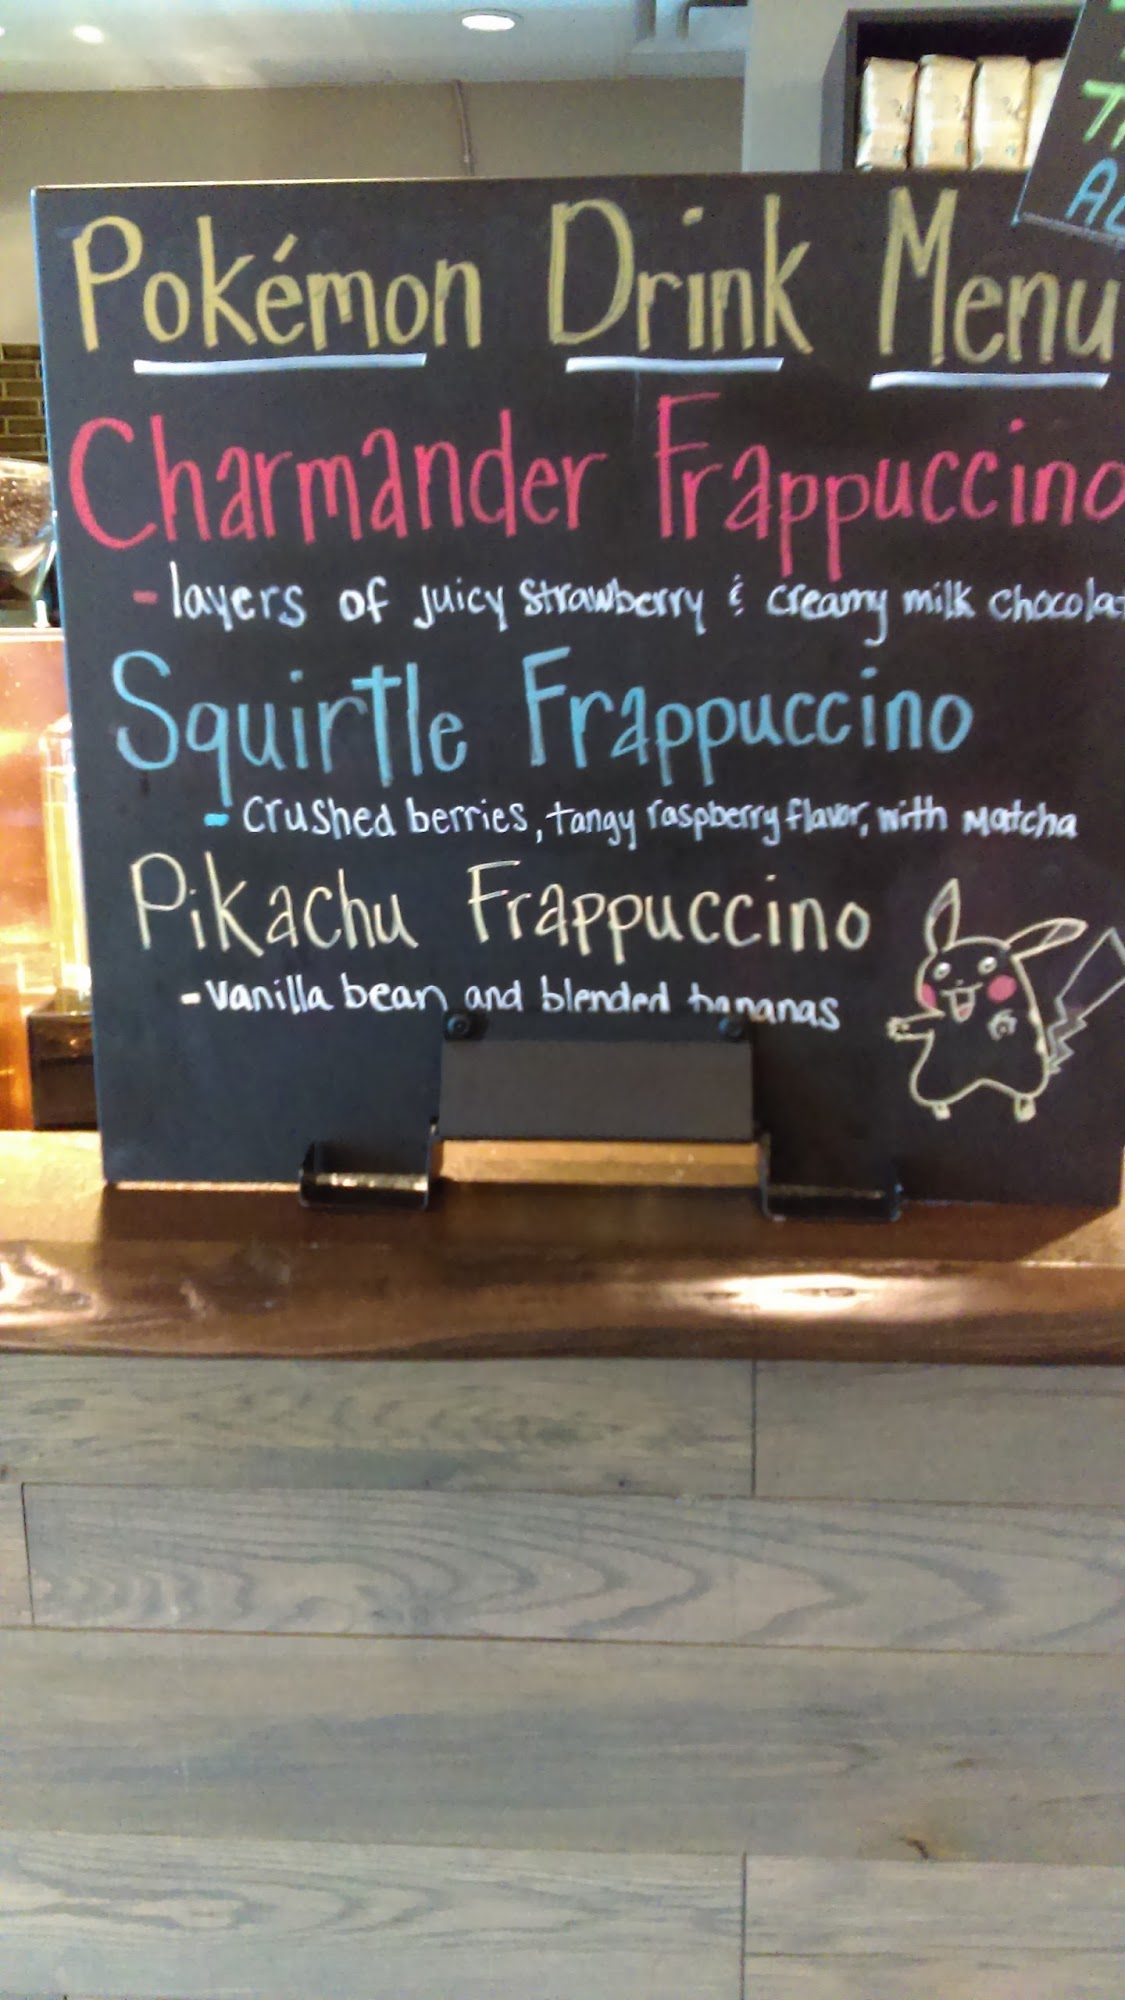 Pokémon Drink Menu
Charmander Frappuccino
- layers of juicy strawberry & creamy milk chocolat
Squirtle Frappuccino
- crushed berries, tangy raspberry flavor, with Matcha
Pikachu Frappuccino
- vanilla bean and blended bananas